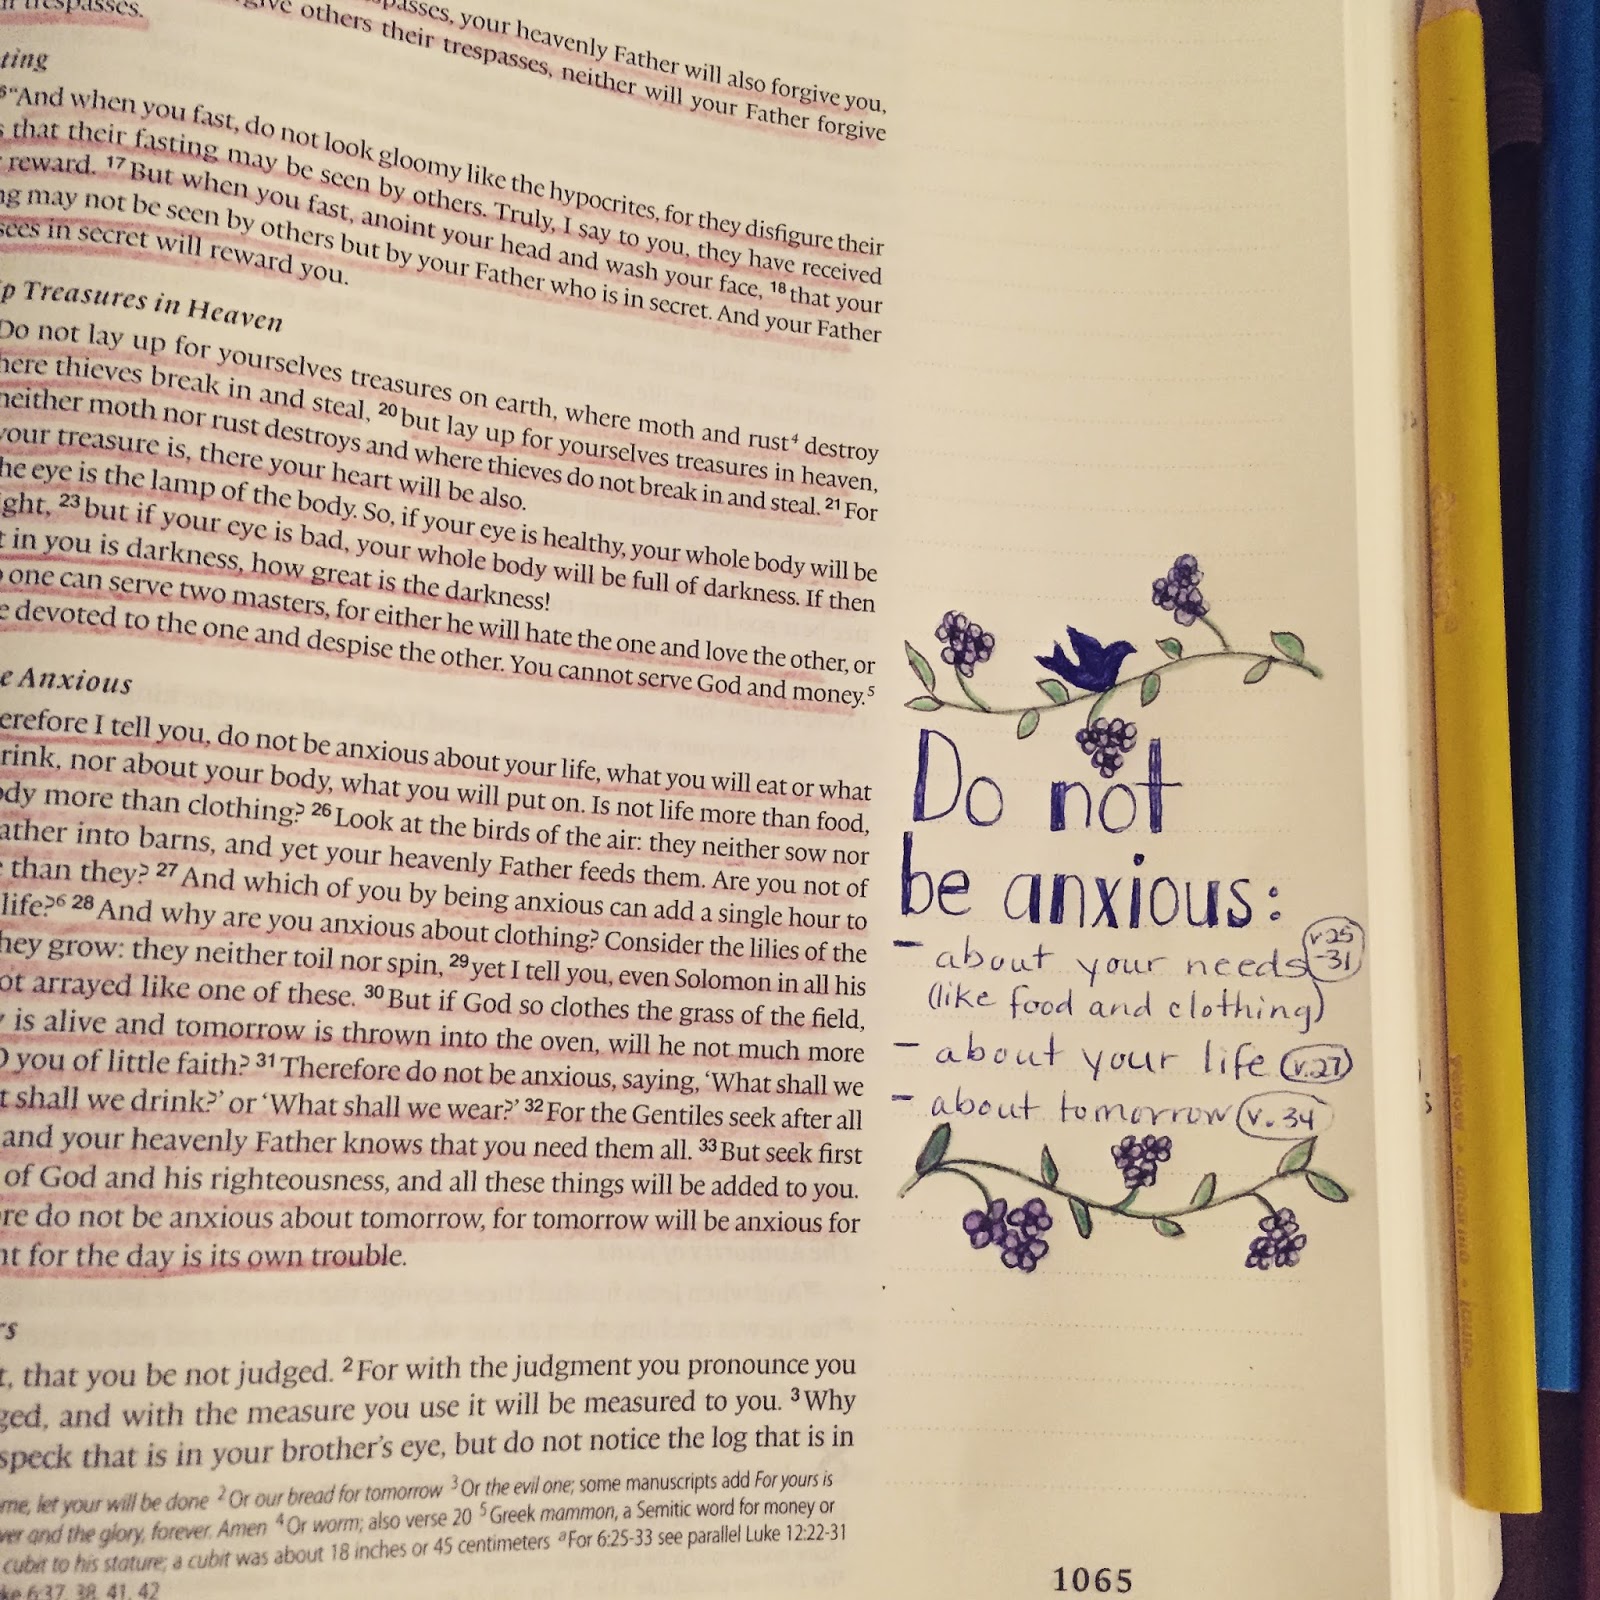 trespasses.
passes, your heavenly Father will also forgive you,
give others their trespasses, neither will your Father forgive
ting
"And when you fast, do not look gloomy like the hypocrites, for they disfigure their
that their fasting may be seen by others. Truly, I say to you, they have received
reward. 17 But when you fast, anoint your head and wash your face, 18 that your
ng may not be seen by others but by your Father who is in secret. And your Father
sees in secret will reward you.
p Treasures in Heaven
Do not lay up for yourselves treasures on earth, where moth and rust4 destroy
here thieves break in and steal, 20 but lay up for yourselves treasures in heaven,
neither moth nor rust destroys and where thieves do not break in and steal. 21 For
your treasure is, there your heart will be also.
he eye is the lamp of the body. So, if your eye is healthy, your whole body will be
ight, 23 but if your eye is bad, your whole body will be full of darkness. If then
t in you is darkness, how great is the darkness!
o one can serve two masters, for either he will hate the one and love the other, or
e devoted to the one and despise the other. You cannot serve God and money.5
e Anxious
erefore I tell you, do not be anxious about your life, what you will eat or what
rink, nor about your body, what you will put on. Is not life more than food,
ody more than clothing? 26 Look at the birds of the air: they neither sow nor
ather into barns, and yet your heavenly Father feeds them. Are you not of
e than they? 27 And which of you by being anxious can add a single hour to
life?6 28 And why are you anxious about clothing? Consider the lilies of the
hey grow: they neither toil nor spin, 29 yet I tell you, even Solomon in all his
ot arrayed like one of these. 30 But if God so clothes the grass of the field,
y is alive and tomorrow is thrown into the oven, will he not much more
O you of little faith? 31 Therefore do not be anxious, saying, 'What shall we
t shall we drink?' or 'What shall we wear?' 32 For the Gentiles seek after all
and your heavenly Father knows that you need them all. 33 But seek first
of God and his righteousness, and all these things will be added to you.
re do not be anxious about tomorrow, for tomorrow will be anxious for
nt for the day is its own trouble.
rs
t, that you be not judged. 2 For with the judgment you pronounce you
ged, and with the measure you use it will be measured to you. 3 Why
speck that is in your brother's eye, but do not notice the log that is in
me, let your will be done 2 Or our bread for tomorrow 3 Or the evil one; some manuscripts add For yours is
ver and the glory, forever. Amen 4 Or worm; also verse 20 5 Greek mammon, a Semitic word for money or
cubit to his stature; a cubit was about 18 inches or 45 centimeters a For 6:25-33 see parallel Luke 12:22-31
ke 6:37, 38, 41, 42
Do not
be anxious:
- about your needs v.25-31
(like food and clothing)
- about your life v.27
- about tomorrow v.34
1065
yellow • amarillo • jaune